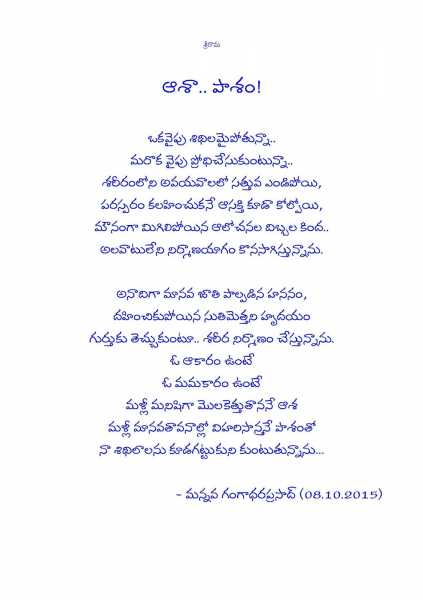 శ్రీరామ
ఆశా.. పాశం!
ఒకవైపు శిథిలమైపోతున్నా..
మరొక వైపు ప్రోధిచేసుకుంటున్నా..
శరీరంలోని అవయవాలలో సత్తువ ఎండిపోయి,
పరస్పరం కలహించుకునే ఆసక్తి కూడా కోల్పోయి,
మౌనంగా మిగిలిపోయిన ఆలోచనల దిబ్బల కింద..
అలవాటులేని నిర్మాణయాగం కొనసాగిస్తున్నాను.
అనాదిగా మానవ జాతి పాల్పడిన హననం,
దహించికుపోయిన సుతిమెత్తని హృదయం
గుర్తుకు తెచ్చుకుంటూ.. శరీర నిర్మాణం చేస్తున్నాను.
ఓ ఆకారం ఉంటే
ఓ మమకారం ఉంటే
మళ్లీ మనిషిగా మొలకెత్తుతాననే ఆశ
మళ్లీ మానవతావనాల్లో విహరిస్తాననే పాశంతో
నా శిఖిలాలను కూడగట్టుకుని కుంటుతున్నాను...
- మన్నవ గంగాధరప్రసాద్ (08.10.2015)